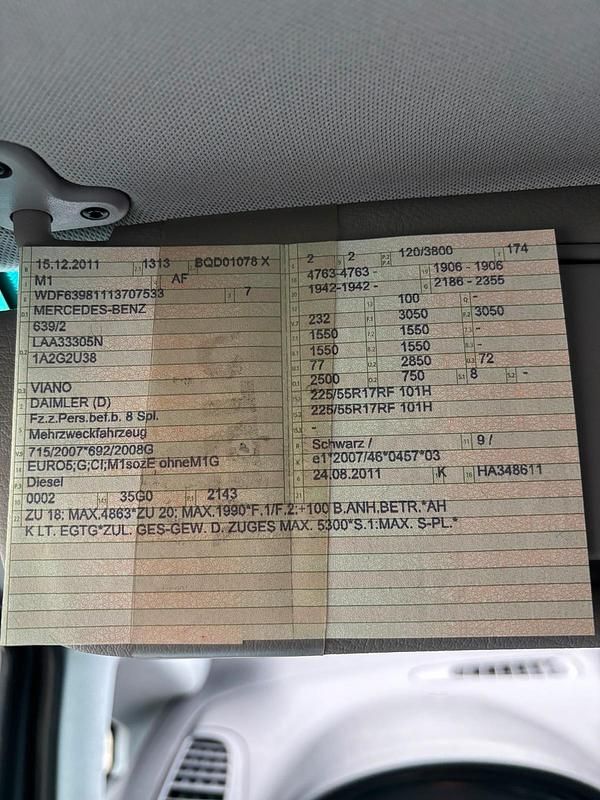 15.12.2011 1313 BQD01078 X
M1 AF
WDF63981113707533 7
MERCEDES-BENZ
639/2
LAA33305N
1A2G2U38
VIANO
DAIMLER (D)
Fz.z.Pers.bef.b. 8 Spl.
Mehrzweckfahrzeug
715/2007*692/2008G
EURO5;G;CI;M1sozE ohneM1G
Diesel
0002 35G0 2143
2 2 120/3800 174
4763-4763 - 1906 - 1906
1942-1942 - 2186 - 2355
100 -
232 3050 3050
1550 1550 -
1550 1550 -
77 2850 72
2500 750 8 -
225/55R17RF 101H
225/55R17RF 101H
-
Schwarz / 9 /
e1*2007/46*0457*03
24.08.2011 K HA348611
ZU 18: MAX.4863*ZU 20: MAX.1990*F.1/F.2:+100 B.ANH.BETR.*AH
K LT. EGTG*ZUL. GES-GEW. D. ZUGES MAX. 5300*S.1:MAX. S-PL.*